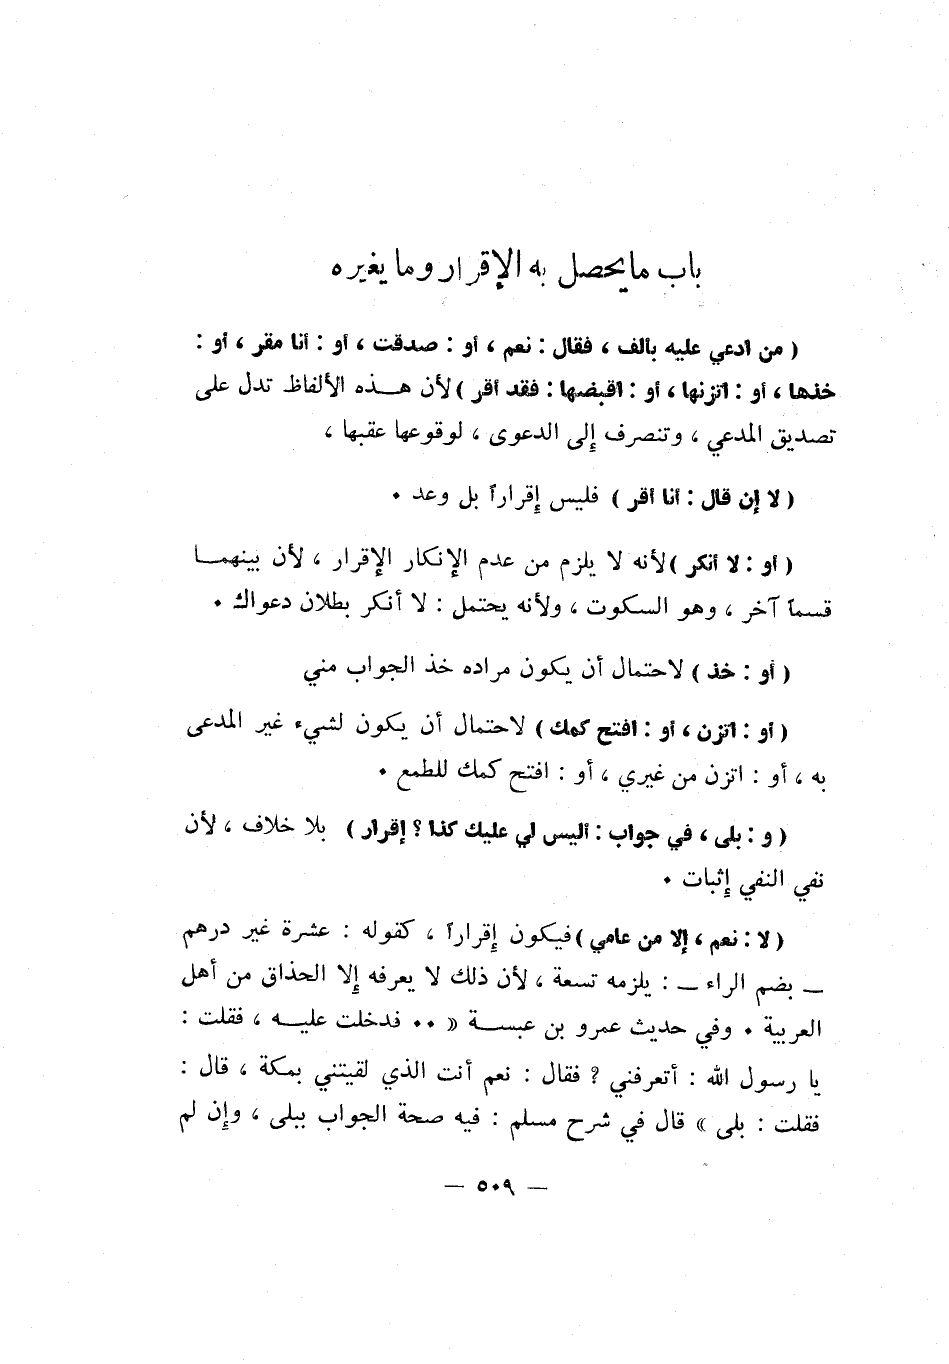 باب ما يحصل به الإقرار وما يغيره
( من ادعي عليه بألف ، فقال : نعم ، أو : صدقت ، أو : أنا مقر ، أو :
خذها ، أو : اتزنها ، أو : اقبضها : فقد أقر ) لأن هـــذه الألفاظ تدل على
تصديق المدعي ، وتنصرف إلى الدعوى ، لوقوعها عقبها ،
( لا إن قال : أنا أقر ) فليس إقراراً بل وعد ٠
( أو : لا أنكر ) لأنه لا يلزم من عدم الإنكار الإقرار ، لأن بينهمـــا
قسماً آخر ، وهو السكوت ، ولأنه يحتمل : لا أنكر بطلان دعواك ٠
( أو : خذ ) لاحتمال أن يكون مراده خذ الجواب مني
( أو : اتزن ، أو : افتح كمك ) لاحتمال أن يكون لشيء غير المدعى
به ، أو : اتزن من غيري ، أو : افتح كمك للطمع ٠
( و : بلى ، في جواب : أليس لي عليك كذا ؟ إقرار ) بلا خلاف ، لأن
نفي النفي إثبات ٠
( لا : نعم ، إلا من عامي ) فيكون إقراراً ، كقوله : عشرة غير درهم
ـ بضم الراء ـ : يلزمه تسعة ، لأن ذلك لا يعرفه إلا الحذاق من أهل
العربية ٠ وفي حديث عمرو بن عبســـة « ٠٠ فدخلت عليـــه ، فقلت :
يا رسول الله : أتعرفني ؟ فقال : نعم أنت الذي لقيتني بمكة ، قال :
فقلت : بلى » قال في شرح مسلم : فيه صحة الجواب ببلى ، وإن لم
— ٥٠٩ —